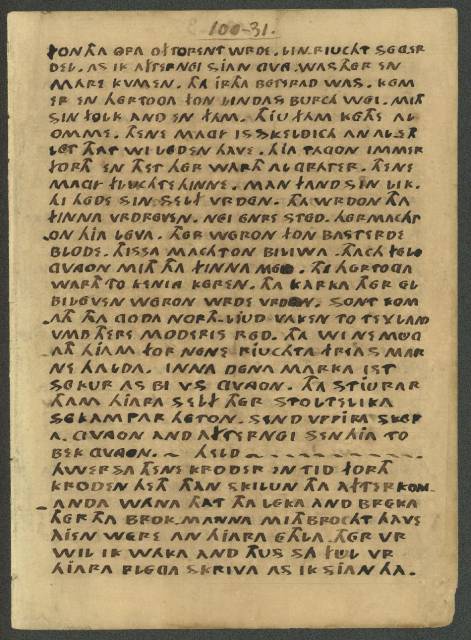 100-31.
FON THA OPA OFTORENT WRDE. LIN. RIUCHT SEGER
DEL. AS IK AFTERNEI SIAN GVNG. WAS THER EN
MARE KVMEN. THA IRTHA BEFERAD WAS. KEM
ER EN HERTOGA FON LINDAS BURCH WEI. MITH
SIN FOLK AND EN FAM. THIU FAM KETHE AL
OMME. THENE MAGI IS SKELDICH AN AL ET
LET THAT WI LEDEN HAVE. HIA TAGON IMMER
FORTH EN THET HER WARTH AL GRATER. THENE
MAGI FLUCHTE HINNE. MAN FAND SIN LIK.
HI HEDE SIN SELF VRDEN. THA WRDON THA
FINNA VRDREVEN. NEI ENRE STED. THER MACHT
ON HIA LEVA. THER WERON FON BASTERDE
BLODE. THISSA MACHTON BILIWA. THACH FELO
GVNGON MITH THA FINNA MEI. THI HERTOGA
WARTH TO KENING KEREN. THA KARKA THER EL
BILEVEN WERON WRDE VRDEN. SONT KOM
ATH THA GODA NORTH-LIUD VAKEN TO TEXLAND
VMB THERE MODERIS RED. THA WI NE MUG
ATH HIAM FOR NENE RIUCHTA FRIAS MAR
NE HALDA. INNA DENA MARKA IST
SEKUR AS BI VS GVNGON. THA STIURAR
THAM HIARA SELF THER STOLTELIKA
SEKAMPAR HETON. SEND VPPIRA SKEP
A. GVNGON AND AFTERNEI SEN HIA TO
BEK GVNGON.~ HELD
HWERSA THENE KRODER EN TID FORTH
KRODEN HETH THAN SKILUN THA AFTERKOM
ANDA WANA THAT THA LEKA AND BREKA
THER THA BROK-MANNA MITH BROCHT HAVE
AIEN WERE AN HIARA ETHLA. THER VR
WIL IK WAKA AND THUS SA FUL VR
HIARA PLEGA SKRIVA AS IK SIAN HA.